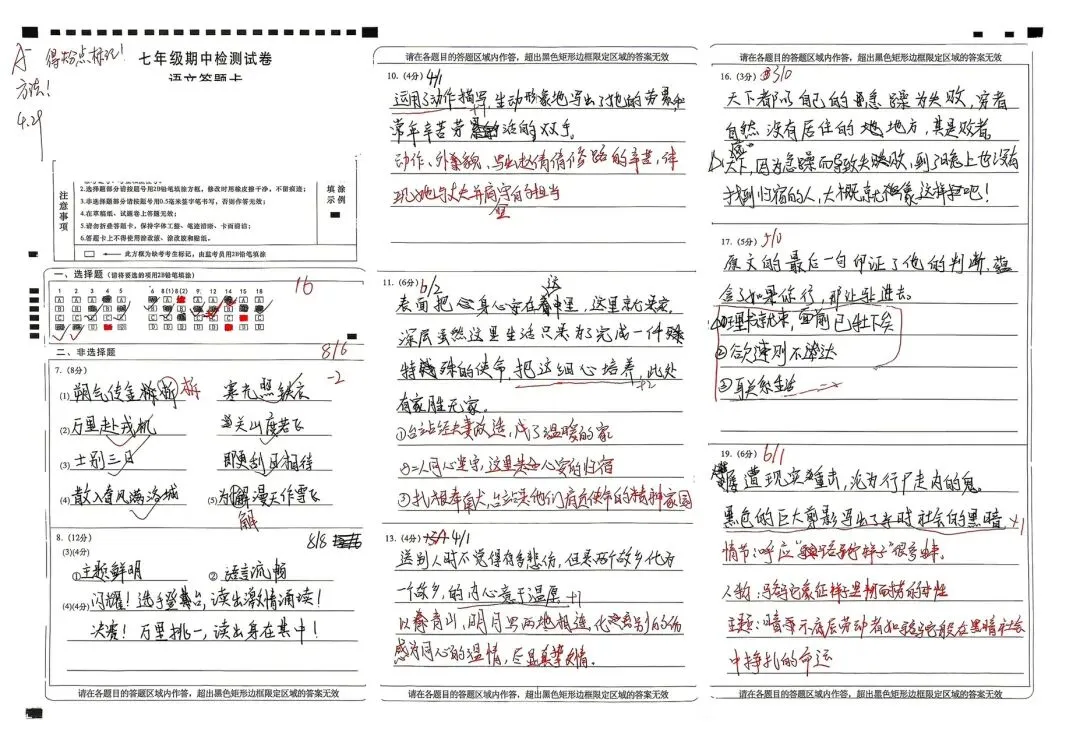 A-
得分点标记!
方法!
4.29
七年级期中检测试卷
语文答题卡
注意事项
2.选择题部分请按题号用2B铅笔填涂方框,修改时用橡皮擦干净,不留痕迹;
3.非选择题部分请按题号用0.5毫米签字笔书写,否则作答无效;
4.在草稿纸、试题卷上答题无效;
5.请勿折叠答题卡,保持字体工整、笔迹清晰、卡面清洁;
6.答题卡上不得使用涂改液、涂改胶和贴纸。
填涂示例
此方框为缺考考生标记,由监考员用2B铅笔填涂
一、选择题(请将要选的项用2B铅笔填涂)
16
二、非选择题
8/6
-2
7.(8分)
(1)朔气传金柝 柝 寒光照铁衣
(2)万里赴戎机 关山度若飞
(3)士别三日 即更刮目相待
(4)散入春风满洛城 (5)为解漫天作雪飞
解
8.(12分)
8/8
(3)(4分)
①主题鲜明 ②语言流畅
(4)(4分)闪耀!选手登台,读出激情诵读!
决赛!万里挑一,读出身在其中!
请在各题目的答题区域内作答,超出黑色矩形边框限定区域的答案无效
请在各题目的答题区域内作答,超出黑色矩形边框限定区域的答案无效
10.(4分) 4/1
运用了动作描写,生动形象地写出了她的劳累和
常年辛苦劳累的活的双手。
动作、外貌,写出赵倩倩修路的辛苦,体
现她与丈夫并肩守的担当
11.(6分) 6/2
表面把心身心安在这里,这里就是家。
深层虽然这里生活只是为了完成一件
特殊的使命,把这细心培养,此处
+2
有家胜无家。
①台站经夫妻改造,成了温暖的家
②二人同心坚守,这里是心安的归宿
③扎根奉献,台站是他们肩负使命的精神家园
13.(4分) 4/1
送别人时不觉得有多悲伤,但是两个故乡化为
一个故乡,的内心意干温厚 +1
以青山,明月与两地相连,化离别的伤
感为同心的温情,尽显真挚友情。
请在各题目的答题区域内作答,超出黑色矩形边框限定区域的答案无效
请在各题目的答题区域内作答,超出黑色矩形边框限定区域的答案无效
16.(3分) 3/0
天下都以自己的急躁为失败,穷者
自然没有居住的地地方,其是败者。
天下,因为急躁而导致失败,到了晚上也没有
找到归宿的人,大概就像这样把吧!
17.(5分) 5/0
原文的最后一句印证了他的判断,蕴
含了如果你行,那让驻进去。
②欲速则不达
19.(6分) 6/1
遭现实重击,沦为行尸走肉的鬼。
黑色的巨大剪影写出了当时社会的黑暗 +1
情节:呼应
人物:骆驼象征祥子坚韧而苦的中性
主题:暗示底层劳动者如骆驼般在黑暗社会
中挣扎的命运
请在各题目的答题区域内作答,超出黑色矩形边框限定区域的答案无效